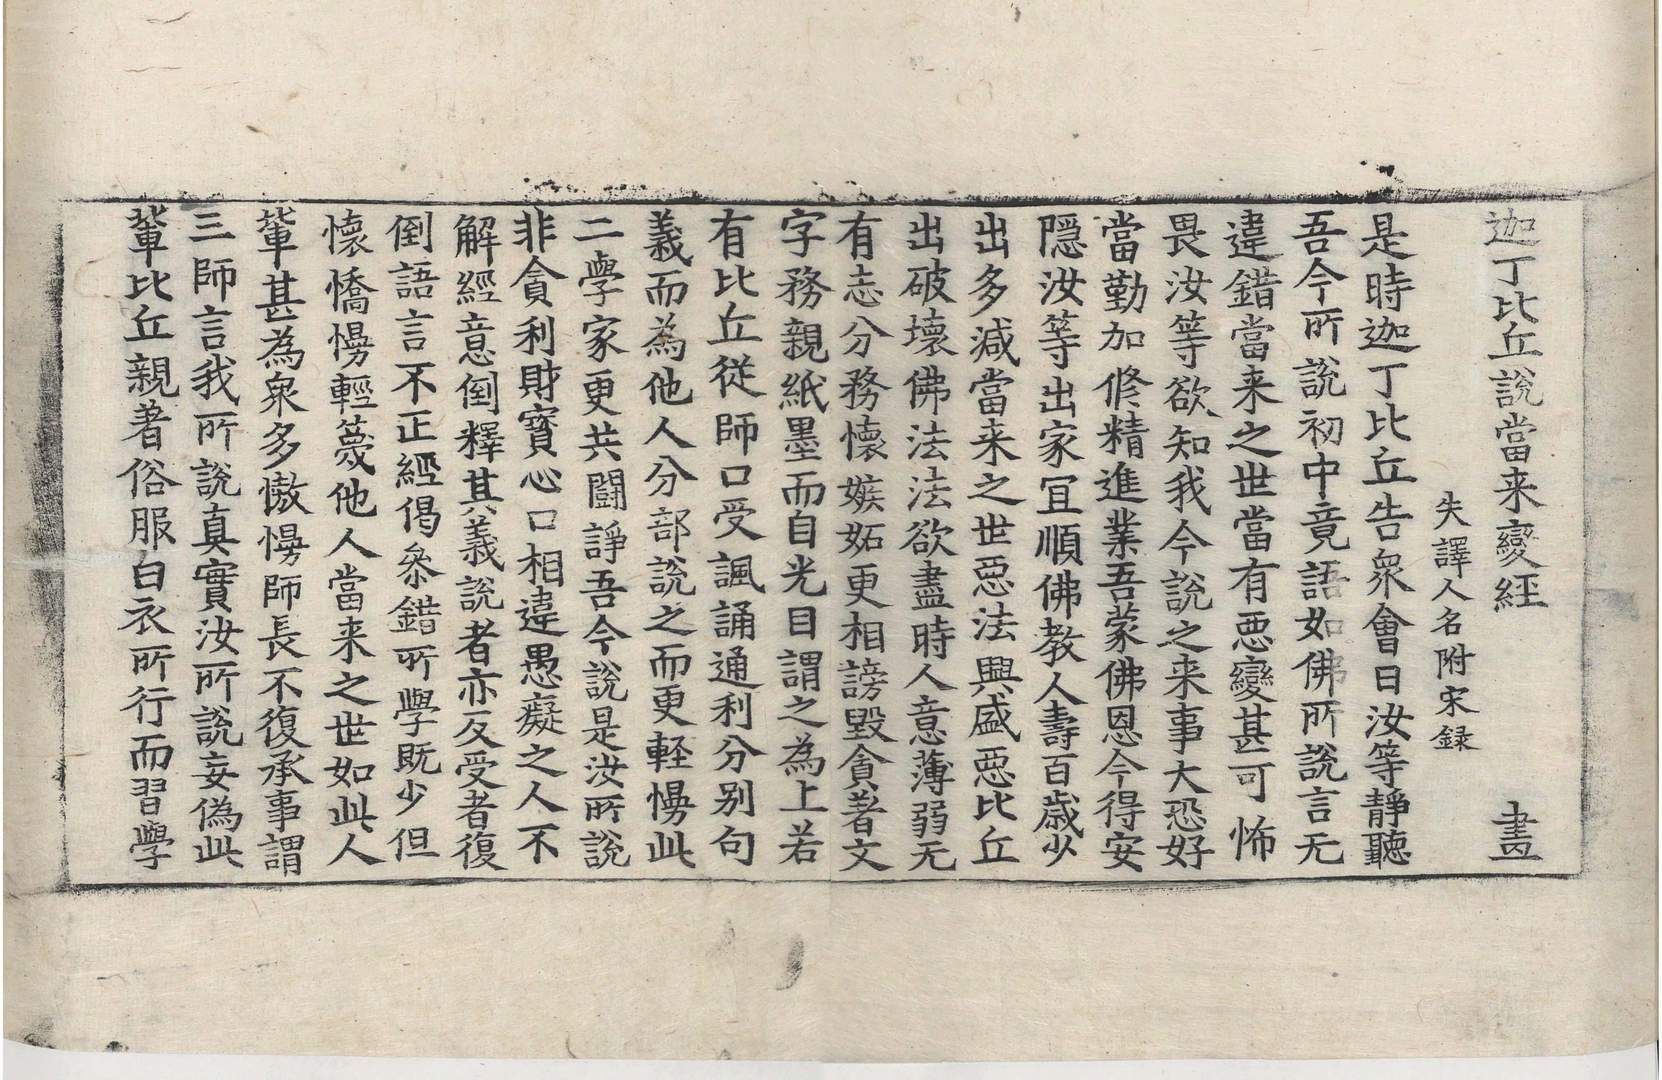 迦丁比丘說當来變経 畫
失譯人名附宋録
是時迦丁比丘告衆會曰汝等靜聽
吾今所說初中竟語如佛所說言无
違錯當来之世當有惡變甚可怖
畏汝等欲知我今說之来事大恐好
當勤加修精進業吾蒙佛恩今得安
隱汝等出家冝順佛教人壽百歲少
出多減當来之世惡法興盛惡比丘
出破壞佛法法欲盡時人意薄弱无
有志分務懷嫉妬更相謗毀貪著文
字務親紙墨而自光目謂之為上若
有比丘從師口受諷誦通利分別句
義而為他人分部說之而更輕慢此
二學家更共鬪諍吾今說是汝所說
非貪利財寶心口相違愚癡之人不
解經意倒釋其義說者亦反受者復
倒語言不正經偈叅錯所學既少但
懷憍慢輕蔑他人當来之世如此人
輩甚為衆多慠慢師長不復承事謂
三師言我所說真實汝所說妄偽此
輩比丘親著俗服白衣所行而習學